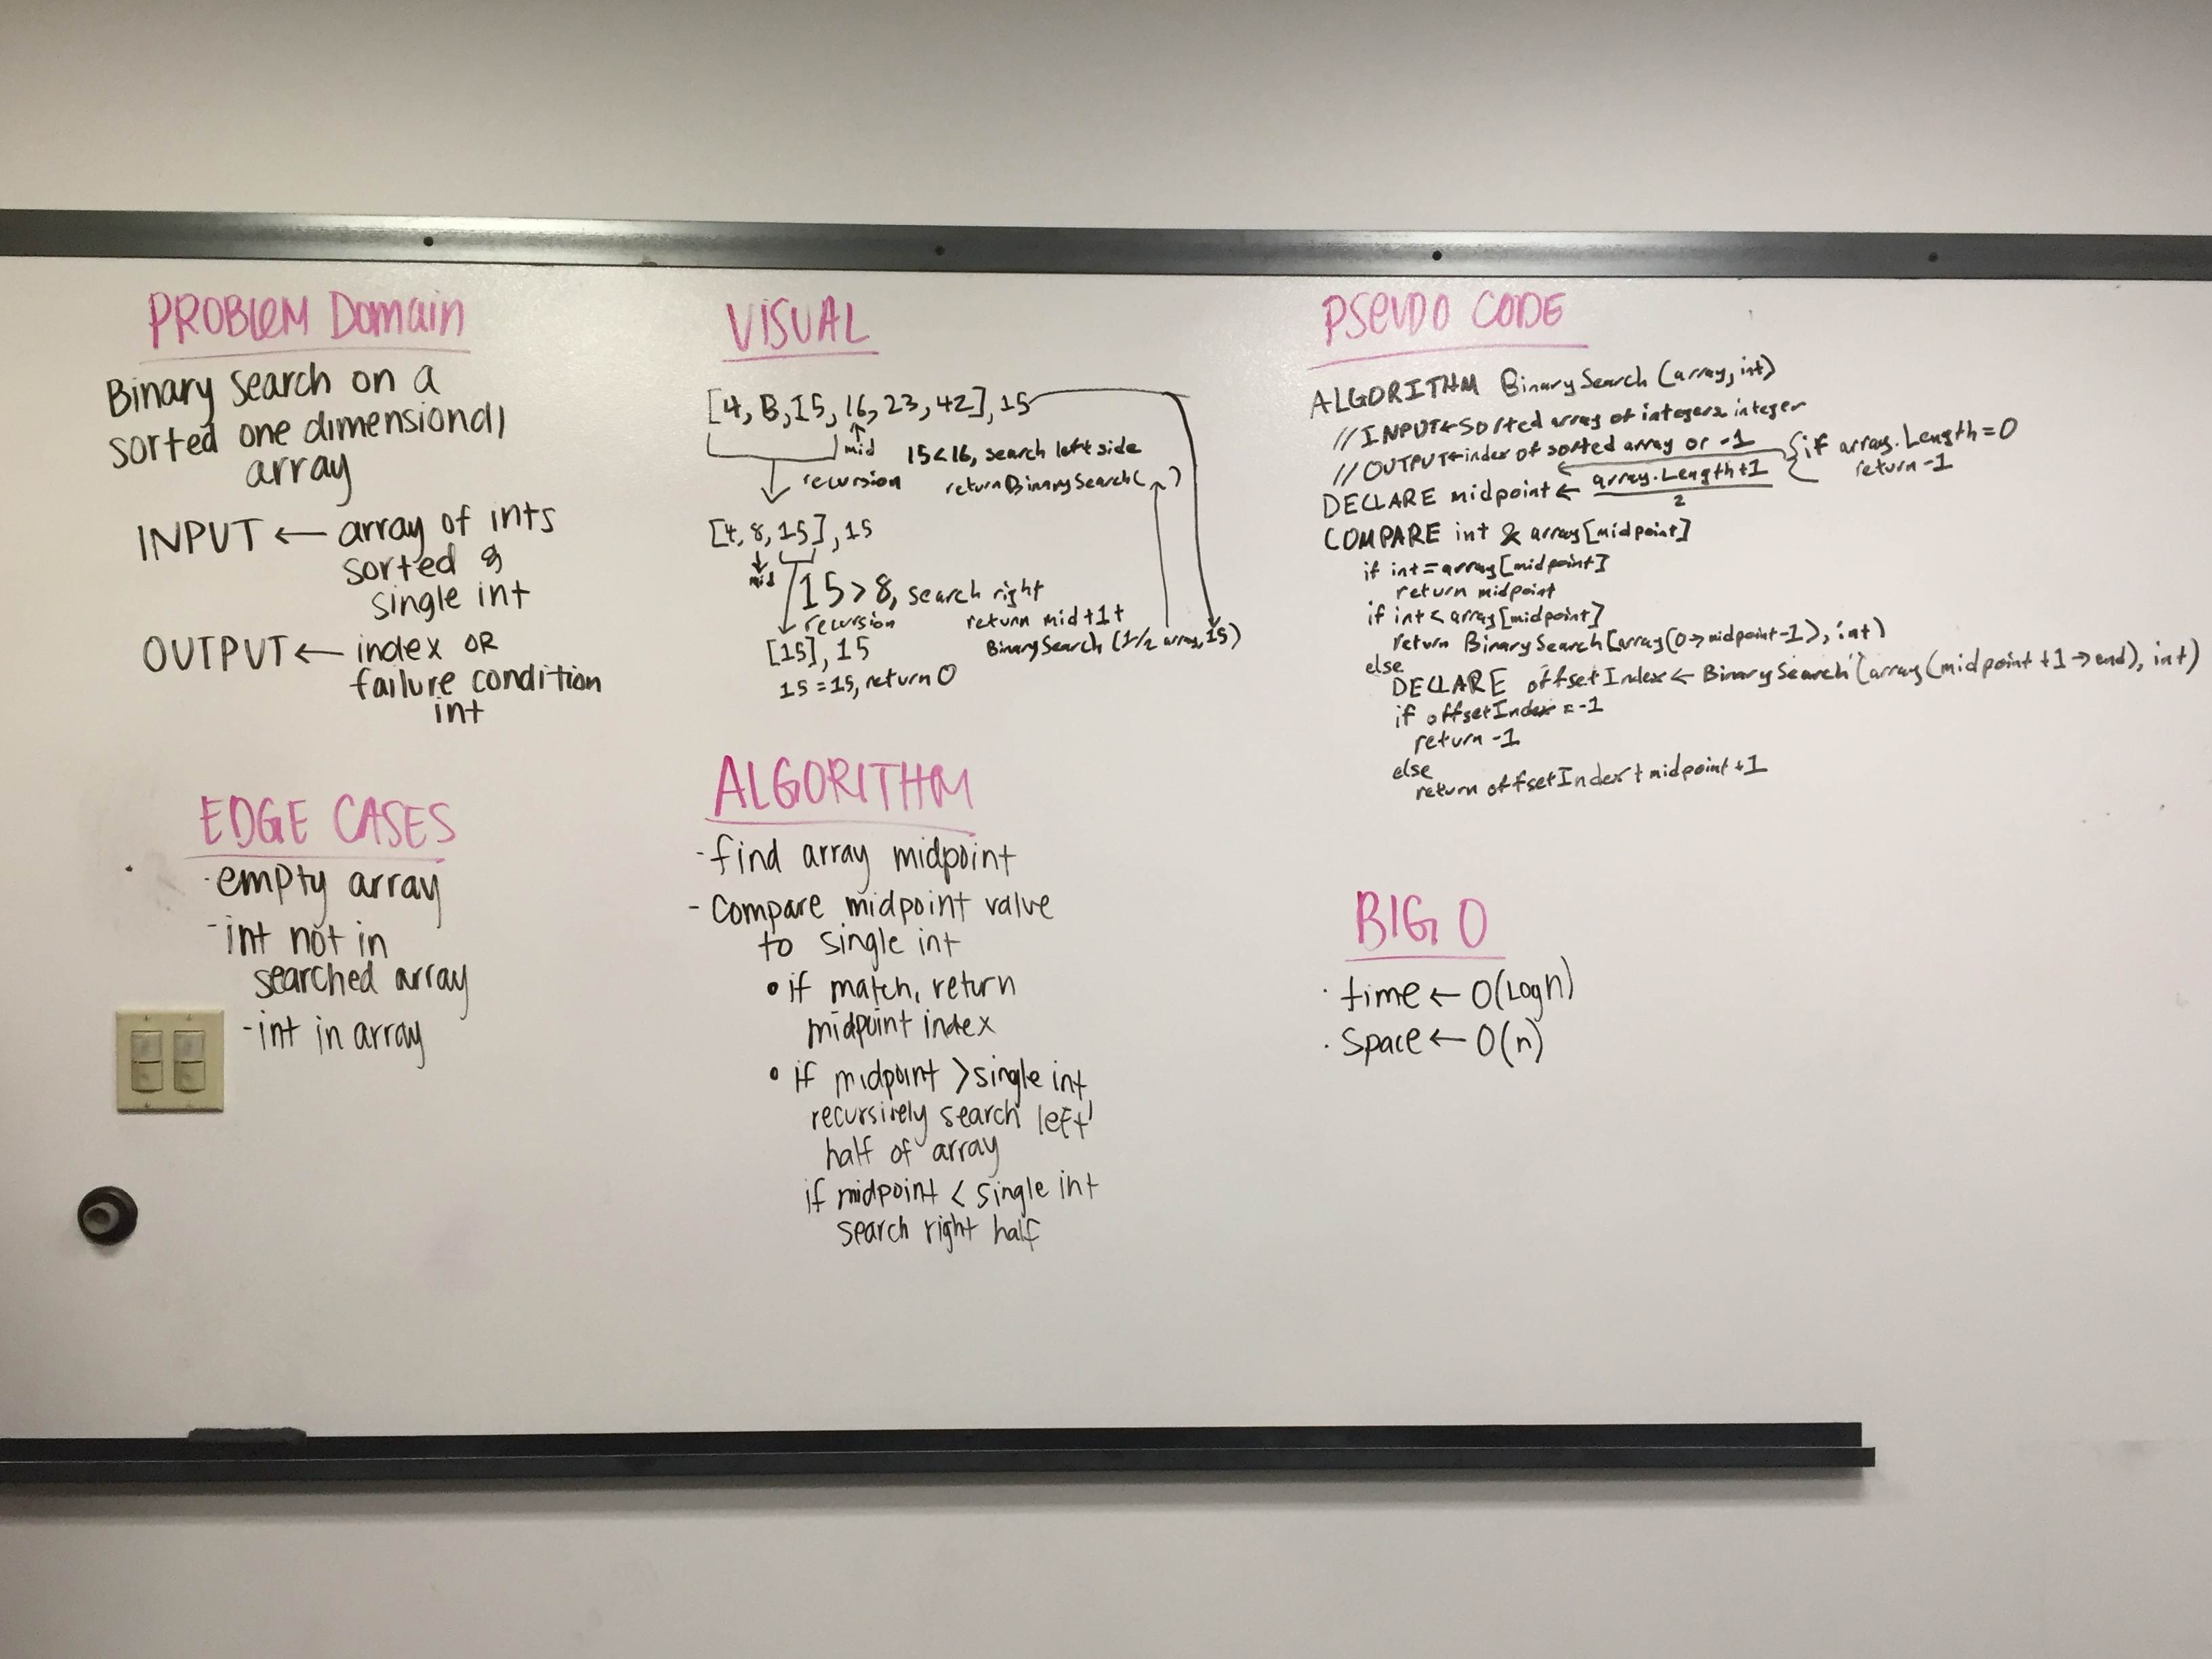 PROBLEM Domain
Binary Search on a
sorted one dimensional
array
INPUT ← array of ints
sorted &
single int
OUTPUT ← index OR
failure condition
int
EDGE CASES
- empty array
- int not in
searched array
- int in array
VISUAL
[4, 8, 15, 16, 23, 42], 15
mid 15<16, search left side
recursion return BinarySearch( )
[4, 8, 15], 15
mid
15 > 8, search right
recursion return mid+1+
BinarySearch (1/2 array, 15)
[15], 15
15 = 15, return 0
ALGORITHM
- find array midpoint
- compare midpoint value
to single int
• if match, return
midpoint index
• if midpoint > single int
recursively search left
half of array
if midpoint < single int
search right half
PSEUDO CODE
ALGORITHM BinarySearch (array, int)
// INPUT ← Sorted array of integers, integer
// OUTPUT ← index of sorted array or -1
{ if array.Length = 0
return -1
DECLARE midpoint ← array.Length+1
2
COMPARE int & array[midpoint]
if int = array[midpoint]
return midpoint
if int < array[midpoint]
return BinarySearch[array(0→midpoint-1), int)
else
DECLARE offsetIndex ← BinarySearch (array(midpoint +1→end), int)
if offsetIndex = -1
return -1
else
return offsetIndex + midpoint +1
BIG O
· time ← O(Log n)
· space ← O(n)